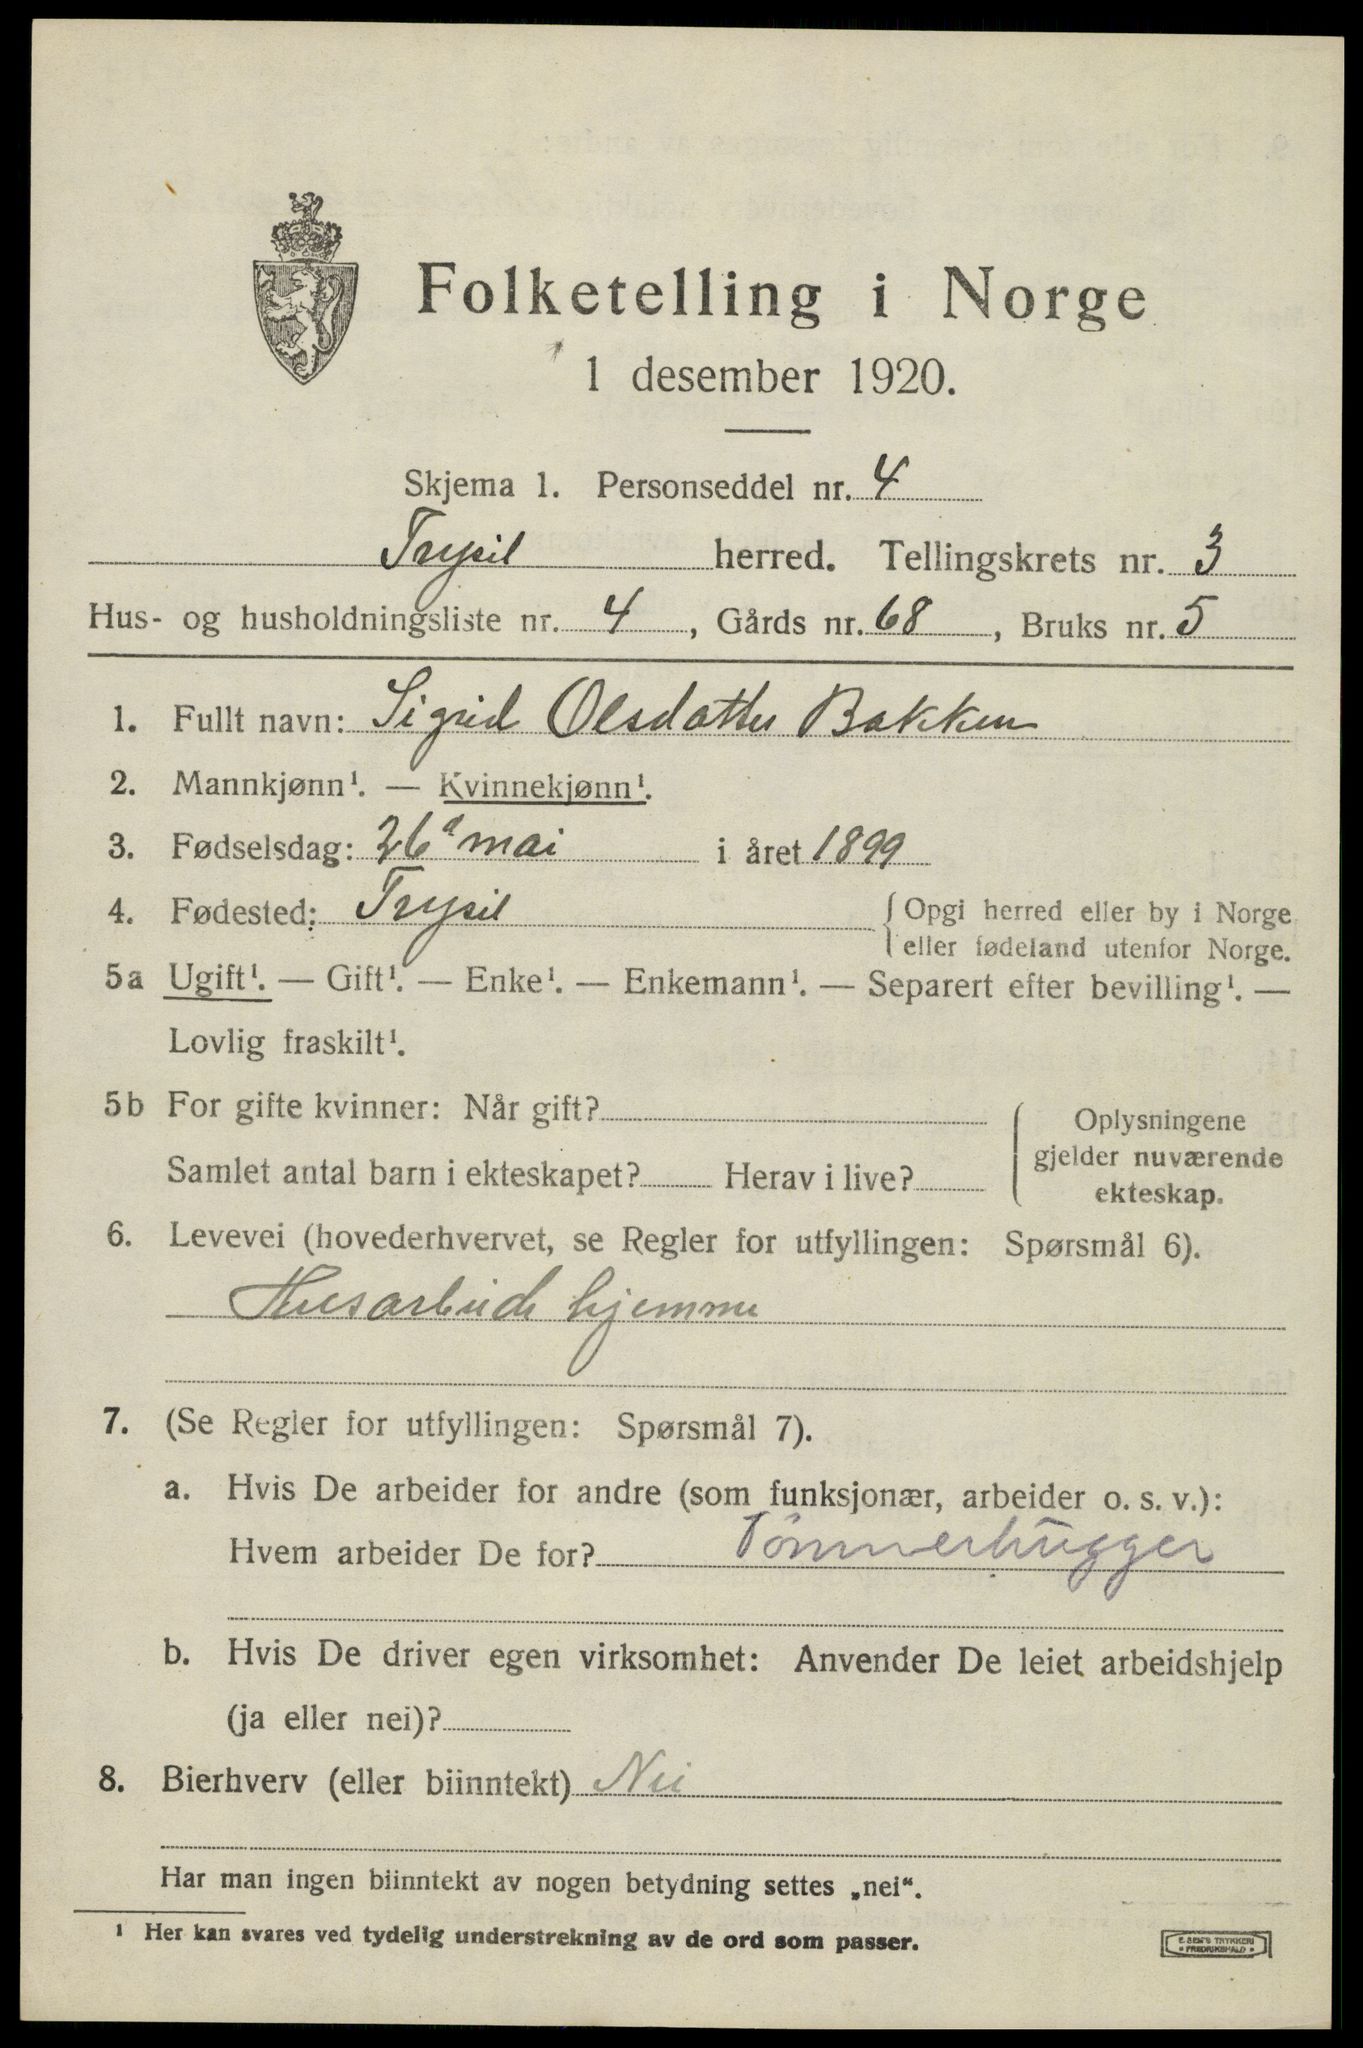 Folketelling i Norge
1 desember 1920.
Skjema 1. Personseddel nr. 4
Trysil herred. Tellingskrets nr. 3
Hus- og husholdningsliste nr. 4, Gårds nr. 68, Bruks nr. 5
1. Fullt navn: Sigrid Olsdatter Bakken
2. Mannkjønn¹. — Kvinnekjønn¹.
3. Fødselsdag: 26d mai i året 1899
4. Fødested: Trysil {Opgi herred eller by i Norge
eller fødeland utenfor Norge.
5a Ugift¹. — Gift¹. — Enke¹. — Enkemann¹. — Separert efter bevilling¹. —
Lovlig fraskilt¹.
5b For gifte kvinner: Når gift?
Samlet antal barn i ekteskapet? Herav i live?
{Oplysningene
gjelder nuværende
ekteskap.
6. Levevei (hovederhvervet, se Regler for utfyllingen: Spørsmål 6).
Husarbeide hjemme
7. (Se Regler for utfyllingen: Spørsmål 7).
a. Hvis De arbeider for andre (som funksjonær, arbeider o. s. v.):
Hvem arbeider De for? Tømmerhugger
b. Hvis De driver egen virksomhet: Anvender De leiet arbeidshjelp
(ja eller nei)?
8. Bierhverv (eller biinntekt) Nei
Har man ingen biinntekt av nogen betydning settes „nei“.
¹ Her kan svares ved tydelig understrekning av de ord som passer.
E. SEM'S TRYKKERI
FREDRIKSHALD